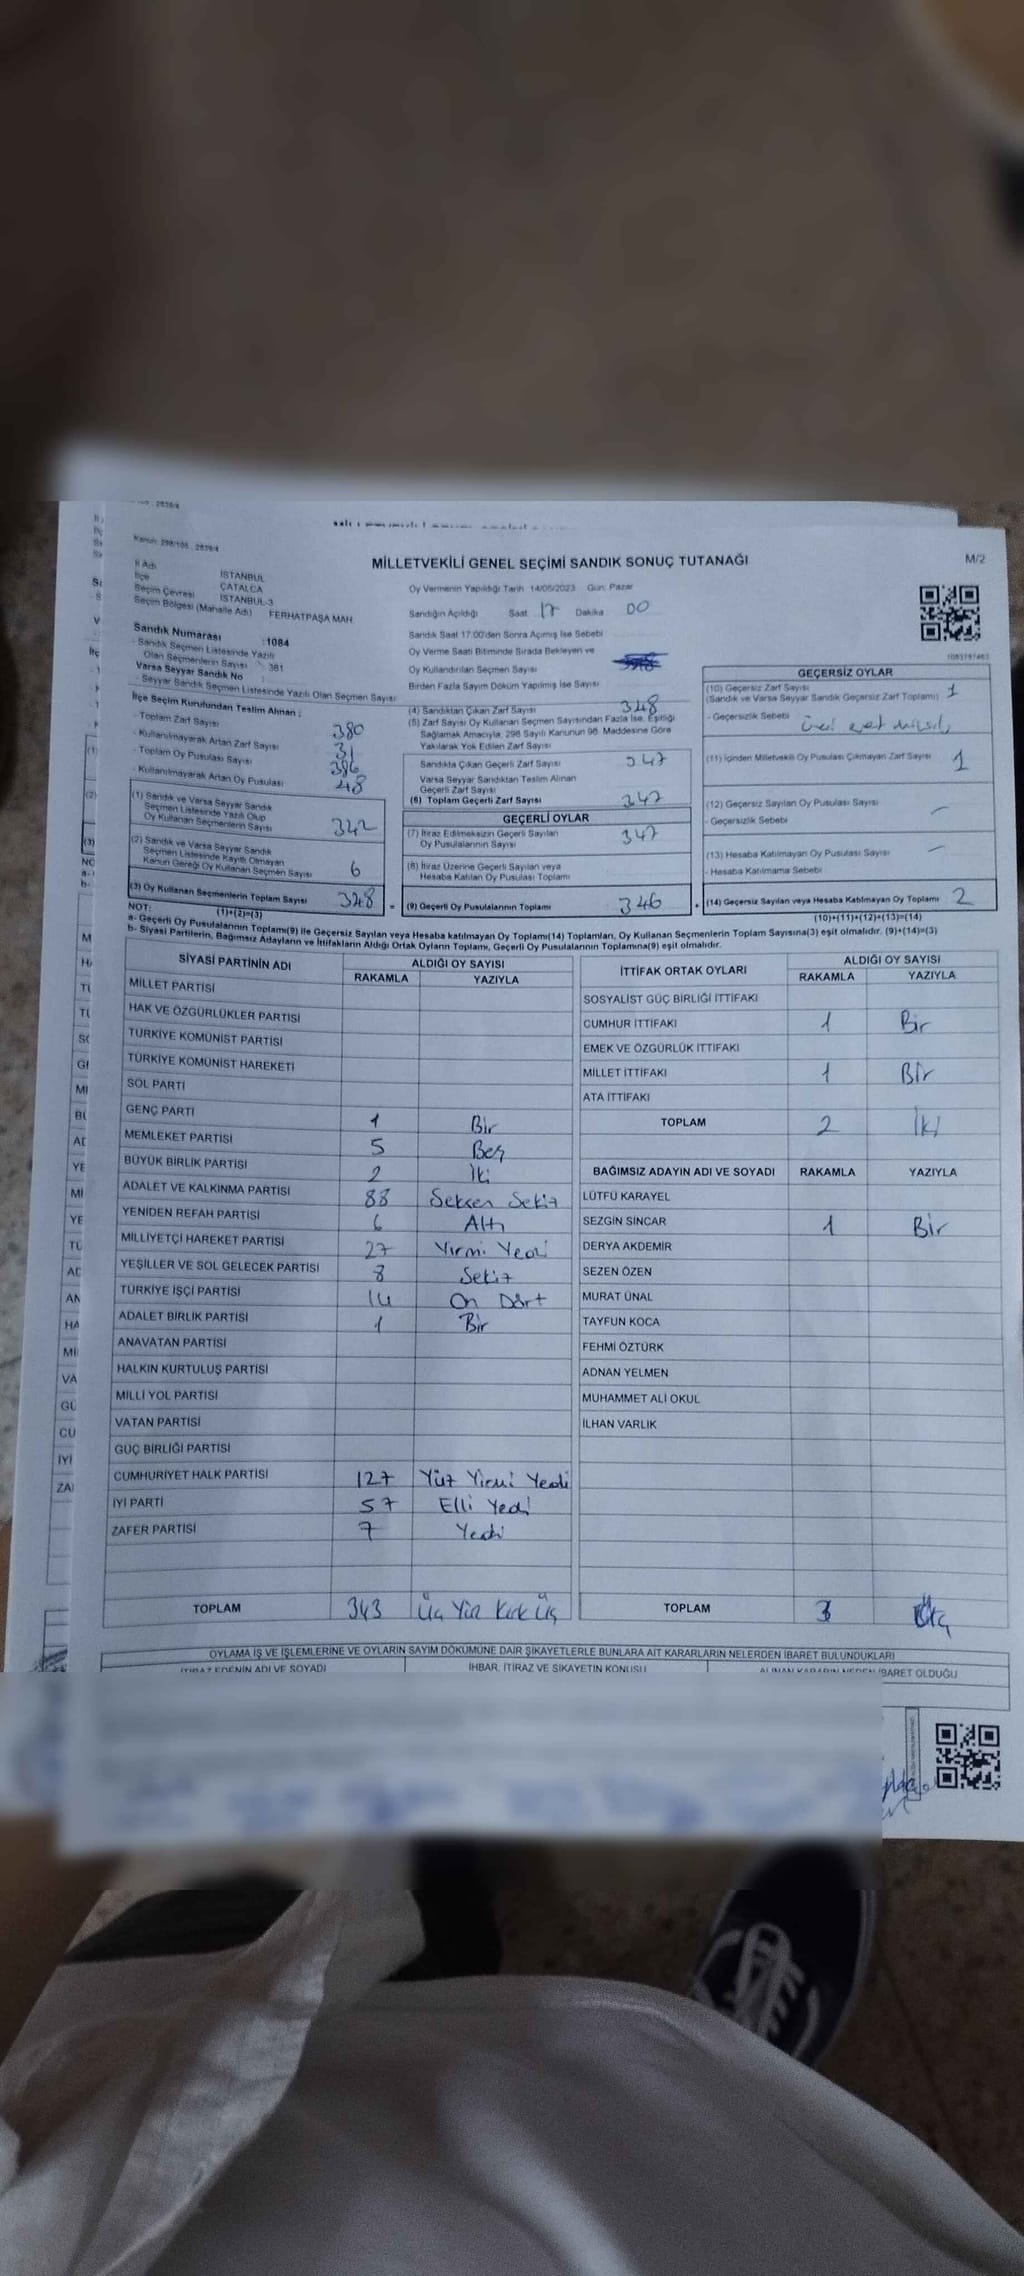 MİLLETVEKİLİ GENEL SEÇİMİ SANDIK SONUÇ TUTANAĞI
M/2
Kanun: 298/105 - 2839/4
İl Adı İSTANBUL
İlçe ÇATALCA
Seçim Çevresi İSTANBUL-3
Seçim Bölgesi (Mahalle Adı) FERHATPAŞA MAH
Sandık Numarası :1084
- Sandık Seçmen Listesinde Yazılı
Olan Seçmenlerin Sayısı : 381
Varsa Seyyar Sandık No
- Seyyar Sandık Seçmen Listesinde Yazılı Olan Seçmen Sayısı
İlçe Seçim Kurulundan Teslim Alınan :
- Toplam Zarf Sayısı 380
- Kullanılmayarak Artan Zarf Sayısı 31
- Toplam Oy Pusulası Sayısı 396
- Kullanılmayarak Artan Oy Pusulası 48
(1) Sandık ve Varsa Seyyar Sandık
Seçmen Listesinde Yazılı Olup
Oy Kullanan Seçmenlerin Sayısı 342
(2) Sandık ve Varsa Seyyar Sandık
Seçmen Listesinde Kayıtlı Olmayan
Kanun Gereği Oy Kullanan Seçmen Sayısı 6
(3) Oy Kullanan Seçmenlerin Toplam Sayısı 348 =
Oy Vermenin Yapıldığı Tarih 14/05/2023 Gün: Pazar
Sandığın Açıldığı Saat 17 Dakika 00
Sandık Saat 17:00'dan Sonra Açımış İse Sebebi
Oy Verme Saati Bitiminde Sırada Bekleyen ve
Oy Kullandırılan Seçmen Sayısı
Birden Fazla Sayım Döküm Yapılmış İse Sayısı
(4) Sandıktan Çıkan Zarf Sayısı 348
(5) Zarf Sayısı Oy Kullanan Seçmen Sayısından Fazla İse, Eşitliği
Sağlamak Amacıyla, 298 Sayılı Kanunun 98. Maddesine Göre
Yakılarak Yok Edilen Zarf Sayısı
Sandıkta Çıkan Geçerli Zarf Sayısı 347
Varsa Seyyar Sandıktan Teslim Alınan
Geçerli Zarf Sayısı
(6) Toplam Geçerli Zarf Sayısı 347
GEÇERLİ OYLAR
(7) İtiraz Edilmeksizin Geçerli Sayılan
Oy Pusulalarının Sayısı 347
(8) İtiraz Üzerine Geçerli Sayılan veya
Hesaba Katılan Oy Pusulası Toplamı
(9) Geçerli Oy Pusulalarının Toplamı 346 +
GEÇERSİZ OYLAR
(10) Geçersiz Zarf Sayısı
(Sandık ve Varsa Seyyar Sandık Geçersiz Zarf Toplamı) 1
- Geçersizlik Sebebi
(11) İçinden Milletvekili Oy Pusulası Çıkmayan Zarf Sayısı 1
(12) Geçersiz Sayılan Oy Pusulası Sayısı –
- Geçersizlik Sebebi
(13) Hesaba Katılmayan Oy Pusulası Sayısı –
- Hesaba Katılmama Sebebi
(14) Geçersiz Sayılan veya Hesaba Katılmayan Oy Toplamı 2
NOT: (1)+(2)=(3)
(10)+(11)+(12)+(13)=(14)
a- Geçerli Oy Pusulalarının Toplamı(9) ile Geçersiz Sayılan veya Hesaba katılmayan Oy Toplamı(14) Toplamları, Oy Kullanan Seçmenlerin Toplam Sayısına(3) eşit olmalıdır. (9)+(14)=(3)
b- Siyasi Partilerin, Bağımsız Adayların ve İttifakların Aldığı Ortak Oyların Toplamı, Geçerli Oy Pusulalarının Toplamına(9) eşit olmalıdır.
SİYASİ PARTİNİN ADI ALDIĞI OY SAYISI
RAKAMLA YAZIYLA
MİLLET PARTİSİ
HAK VE ÖZGÜRLÜKLER PARTİSİ
TÜRKİYE KOMÜNİST PARTİSİ
TÜRKİYE KOMÜNİST HAREKETİ
SOL PARTİ
GENÇ PARTİ 1 Bir
MEMLEKET PARTİSİ 5 Beş
BÜYÜK BİRLİK PARTİSİ 2 İki
ADALET VE KALKINMA PARTİSİ 88 Seksen Sekiz
YENİDEN REFAH PARTİSİ 6 Altı
MİLLİYETÇİ HAREKET PARTİSİ 27 Yirmi Yedi
YEŞİLLER VE SOL GELECEK PARTİSİ 8 Sekiz
TÜRKİYE İŞÇİ PARTİSİ 14 On Dört
ADALET BİRLİK PARTİSİ 1 Bir
ANAVATAN PARTİSİ
HALKIN KURTULUŞ PARTİSİ
MİLLİ YOL PARTİSİ
VATAN PARTİSİ
GÜÇ BİRLİĞİ PARTİSİ
CUMHURİYET HALK PARTİSİ 127 Yüz Yirmi Yedi
İYİ PARTİ 57 Elli Yedi
ZAFER PARTİSİ 7 Yedi
TOPLAM 343 Üç Yüz Kırk Üç
İTTİFAK ORTAK OYLARI ALDIĞI OY SAYISI
RAKAMLA YAZIYLA
SOSYALİST GÜÇ BİRLİĞİ İTTİFAKI
CUMHUR İTTİFAKI 1 Bir
EMEK VE ÖZGÜRLÜK İTTİFAKI
MİLLET İTTİFAKI 1 Bir
ATA İTTİFAKI
TOPLAM 2 İki
BAĞIMSIZ ADAYIN ADI VE SOYADI RAKAMLA YAZIYLA
LÜTFÜ KARAYEL
SEZGİN SİNCAR 1 Bir
DERYA AKDEMİR
SEZEN ÖZEN
MURAT ÜNAL
TAYFUN KOCA
FEHMİ ÖZTÜRK
ADNAN YELMEN
MUHAMMET ALİ OKUL
İLHAN VARLIK
TOPLAM 3 Üç
OYLAMA İŞ VE İŞLEMLERİNE VE OYLARIN SAYIM DÖKÜMÜNE DAİR ŞİKAYETLERLE BUNLARA AİT KARARLARIN NELERDEN İBARET BULUNDUKLARI
İTİRAZ EDENİN ADI VE SOYADI İHBAR, İTİRAZ VE ŞİKAYETİN KONUSU ALINAN KARARIN NEDEN İBARET OLDUĞU